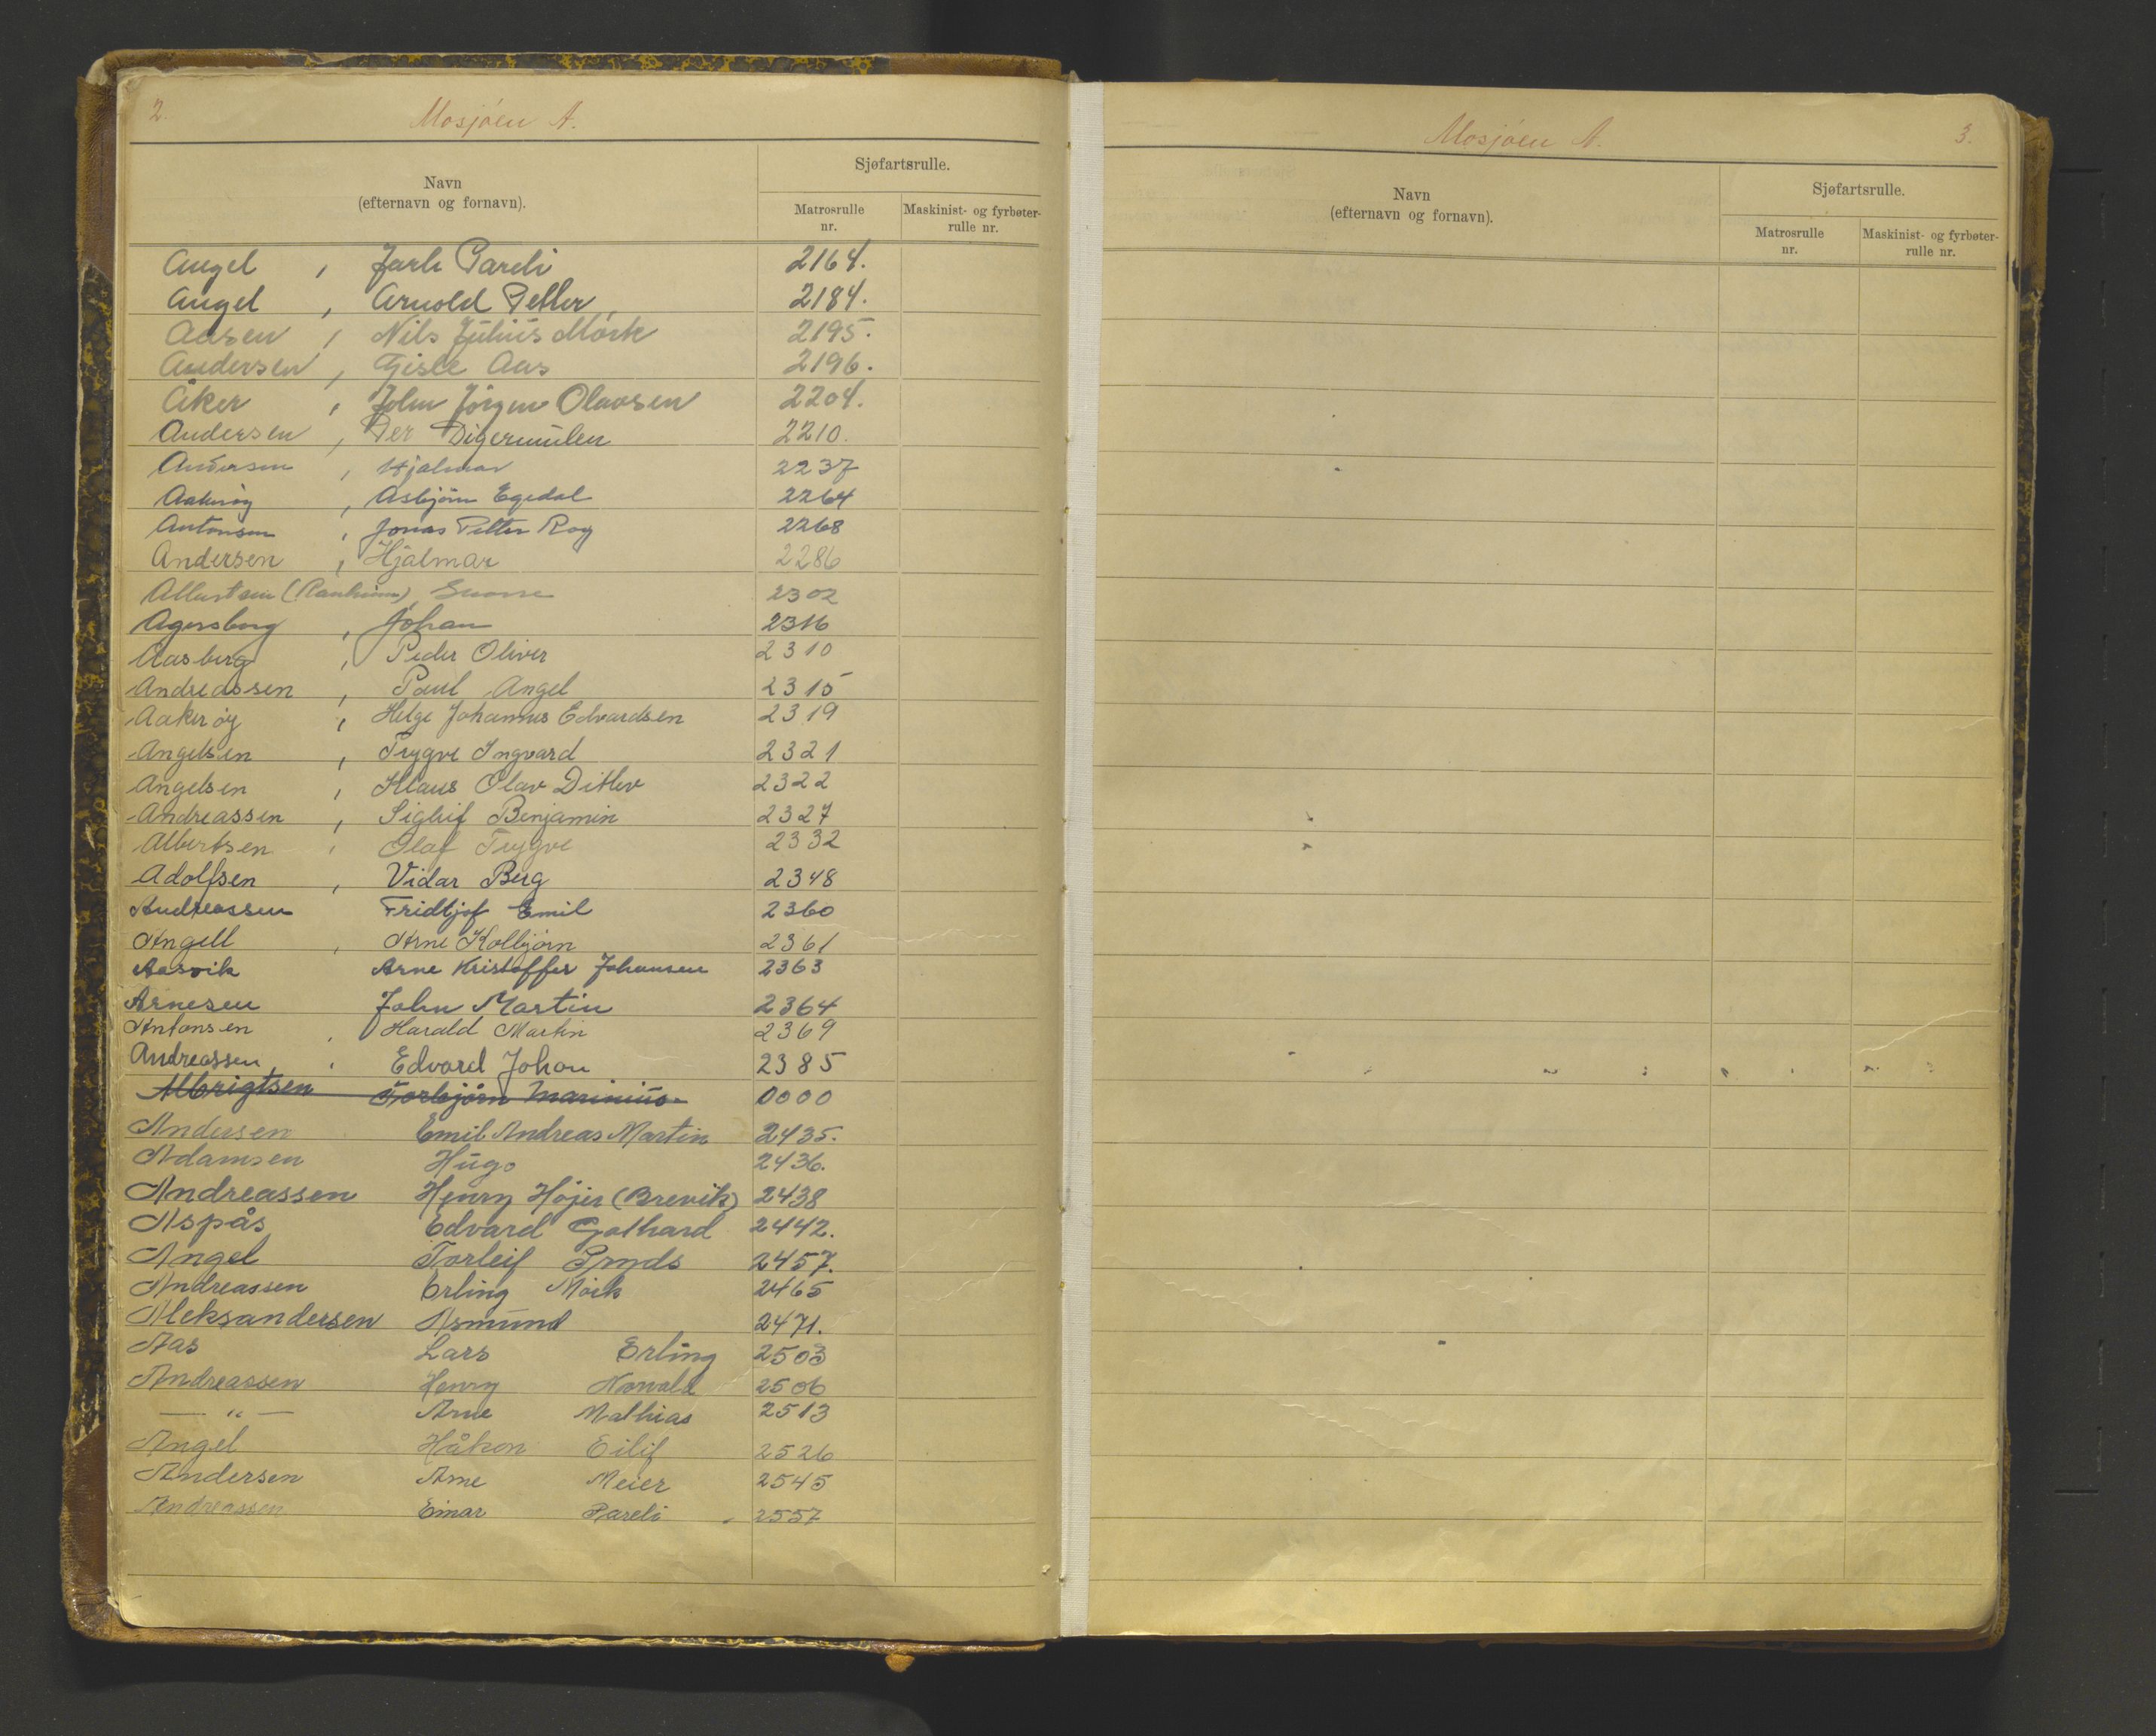 2.
Mosjöen A.
Navn
(efternavn og fornavn).
Sjøfartsrulle.
Matrosrulle
nr.
Maskinist- og fyrbøter-
rulle nr.
Angel , Jarle Pareli 2164.
Angel , Arnold Petter 2184.
Aasen , Nils Julius Mörk 2195.
Andersen , Gisle Aas 2196.
Åker , John Jörgen Olavsen 2204.
Andersen , Per Digermulen 2210.
Andersen , Hjalmar 2237
Aakerøy , Asbjörn Egedal 2264
Antonsen , Jonas Petter Roy 2268
Andersen , Hjalmar 2286
Albertsen (Ranheim), Snorre 2302
Agersborg , Johan 2316
Aasberg , Peder Oliver 2310
Andreassen , Paul Angel 2315
Aakerøy , Helge Johannes Edvardsen 2319
Angelsen , Trygve Ingvard 2321
Angelsen , Klaus Olav Ditlev 2322
Andreassen , Sigleif Benjamin 2327
Albertsen , Olaf Trygve 2332
Adolfsen , Vidar Berg 2348
Andreassen Fridtjof Emil 2360
Angell , Arne Kolbjörn 2361
Aasvik Arne Kristoffer Johansen 2363
Arnesen John Martin 2364
Antonsen , Harald Martin 2369
Andreassen , Edvard Johan 2385
Albrigtsen Torbjörn Marinius 0000
Andersen Emil Andreas Martin 2435.
Adamsen Hugo 2436.
Andreassen Henry Höjer (Brevik) 2438
Aspås Edvard Gothard 2442.
Angel Torleif Pryds 2457.
Andreassen Erling Mörk 2465
Aleksandersen Asmund 2471.
Aas Lars Erling 2503
Andreassen Henry Norvald 2506
— " — Arne Mathias 2513
Angel Håkon Eilif 2526
Andersen Arne Meier 2545
Andreassen Einar Pareli 2557
Mosjöen A.
3.
Navn
(efternavn og fornavn).
Sjøfartsrulle.
Matrosrulle
nr.
Maskinist- og fyrbøter-
rulle nr.